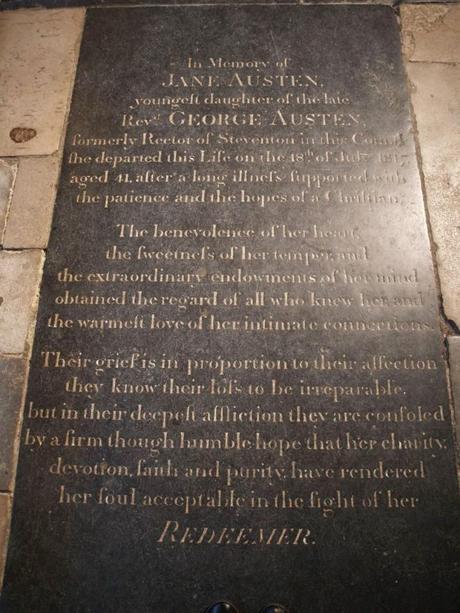 In Memory of
JANE AUSTEN,
youngeſt daughter of the late
Revd. GEORGE AUSTEN,
formerly Rector of Steventon in this County
ſhe departed this Life on the 18th. of July 1817,
aged 41, after a long illneſs ſupported with
the patience and the hopes of a Chriſtian.
The benevolence of her heart,
the ſweetneſs of her temper, and
the extraordinary endowments of her mind
obtained the regard of all who knew her and
the warmeſt love of her intimate connections.
Their grief is in proportion to their affection
they know their loſs to be irreparable,
but in their deepeſt affliction they are conſoled
by a firm though humble hope that her charity,
devotion, faith and purity, have rendered
her ſoul acceptable in the ſight of her
REDEEMER.